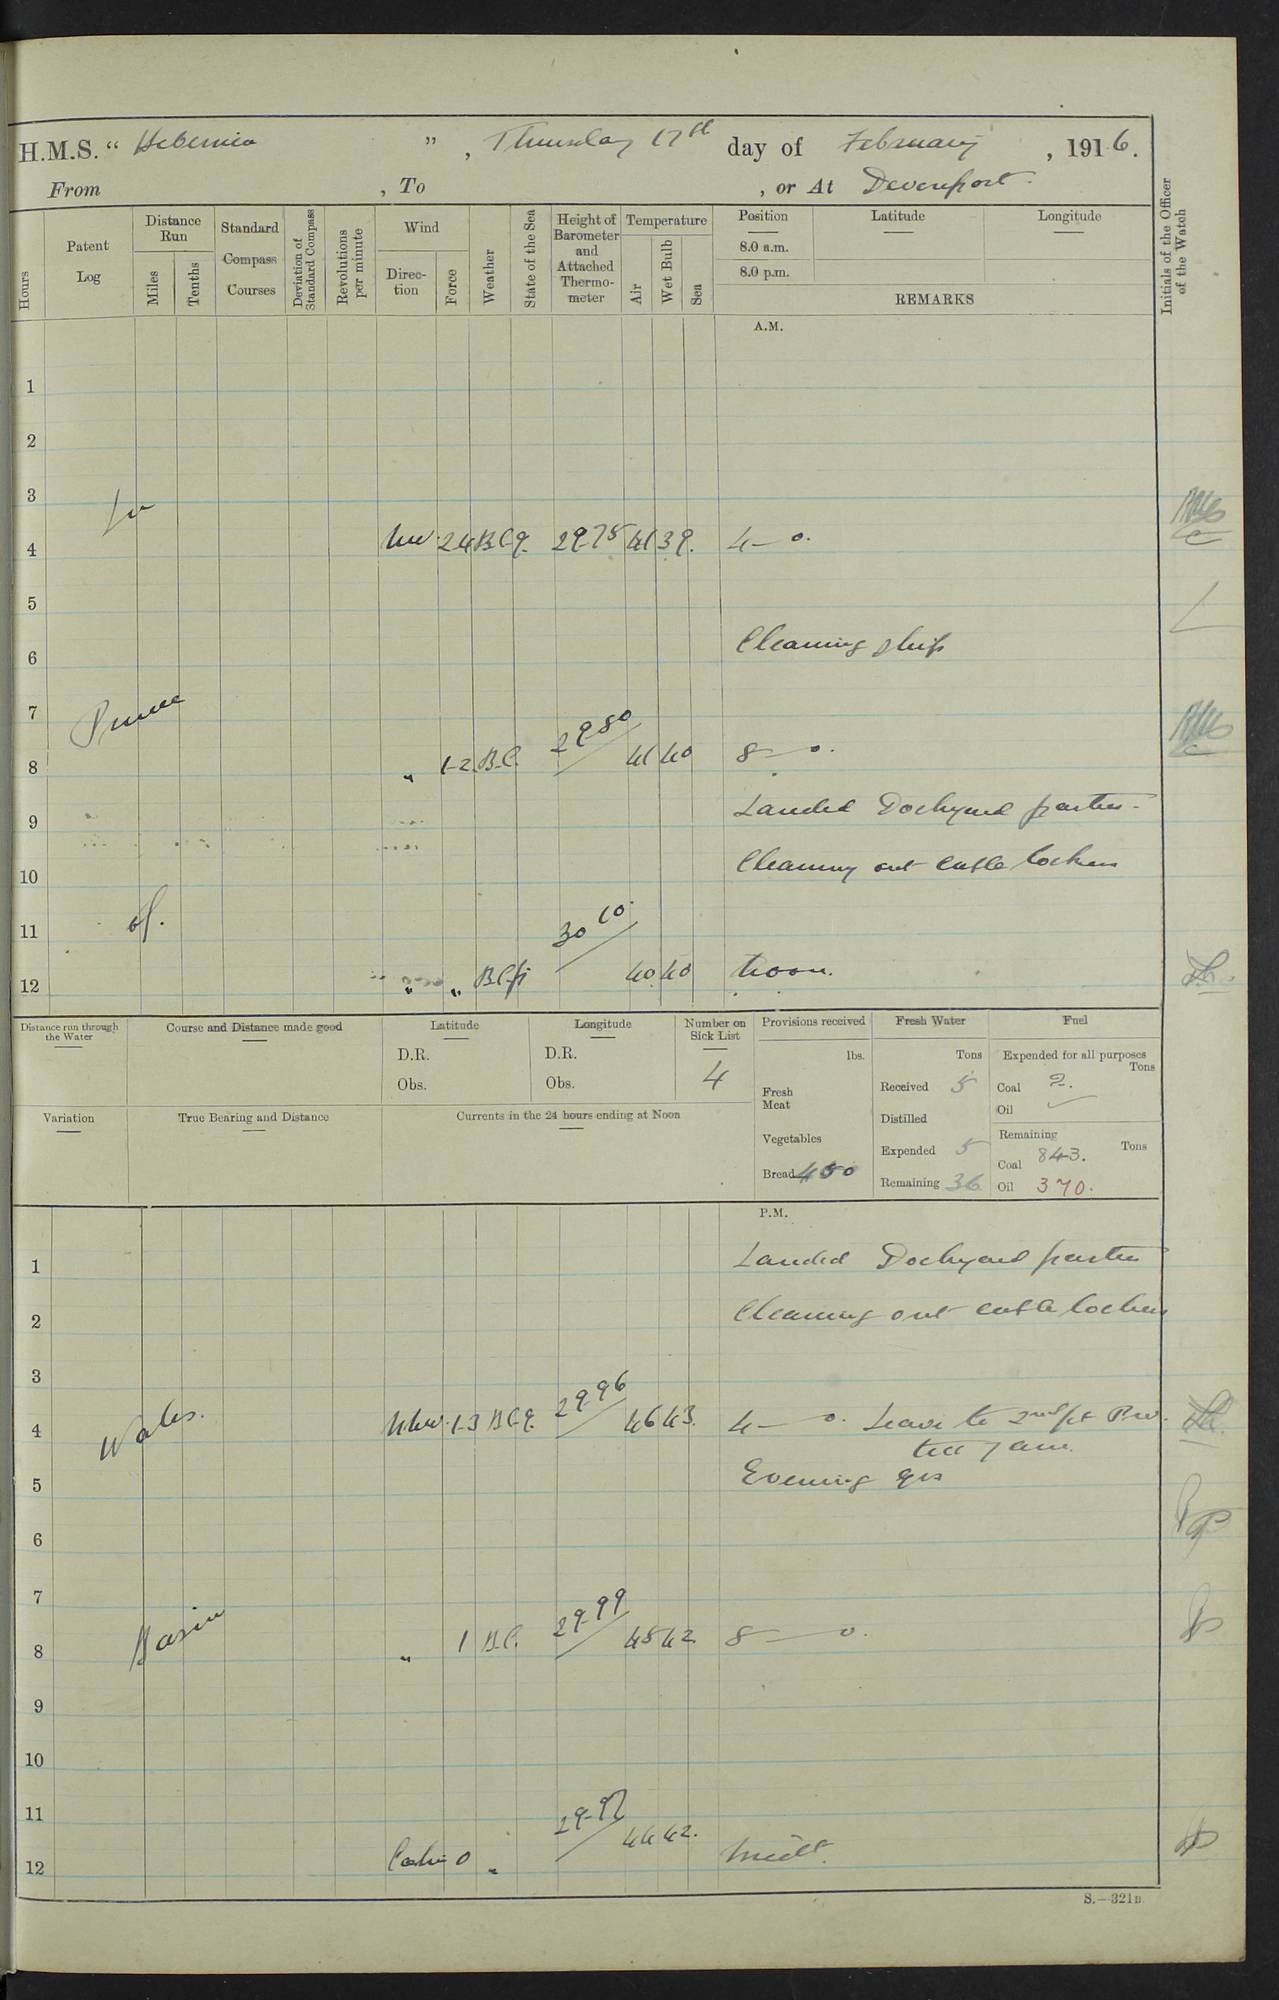 H.M.S. “ Hibernia ” , Thursday 17th day of February , 1916.
From , To , or At Devonport.
Hours
Patent Log
Distance Run
Miles
Tenths
Standard Compass Courses
Deviation of Standard Compass
Revolutions per minute
Wind
Direction
Force
Weather
State of the Sea
Height of Barometer and Attached Thermometer
Temperature
Air
Wet Bulb
Sea
Position
8.0 a.m.
8.0 p.m.
Latitude
Longitude
REMARKS
Initials of the Officer of the Watch
A.M.
1
2
3
In
4 NW 2.4 B.C.q. 29.75 41 39. 4— 0.
5
Cleaning ship
6
7 Prince
8 „ 1-2. B.C. 29.80 41 40 8— 0.
Landed Dockyard parties.
9
Cleaning out cable lockers
10
11 of.
12 „ „ B.C.p 30.10. 40 40 Noon.
Distance run through the Water
Course and Distance made good
Latitude
D.R.
Obs.
Longitude
D.R.
Obs.
Number on Sick List
4
Provisions received
lbs.
Fresh Meat
Vegetables
Bread 400
Fresh Water
Tons
Received 5
Distilled
Expended 5
Remaining 36
Fuel
Expended for all purposes
Tons
Coal 2.
Oil
Remaining
Tons
Coal 843.
Oil 370.
Variation
True Bearing and Distance
Currents in the 24 hours ending at Noon
P.M.
1 Landed Dockyard parties
2 Cleaning out cable lockers
3
4 Wales. NNW 1-3 B.C.q. 29.96 46 43. 4— 0. Leave to 2nd pt Pw.
till 7 am.
5 Evening qrs
6
7
8 Basin „ 1 B.C. 29.99 45 42. 8— 0.
9
10
11
12 Calm 0 „ 29.97 44 42. Midt.
S.—321B.